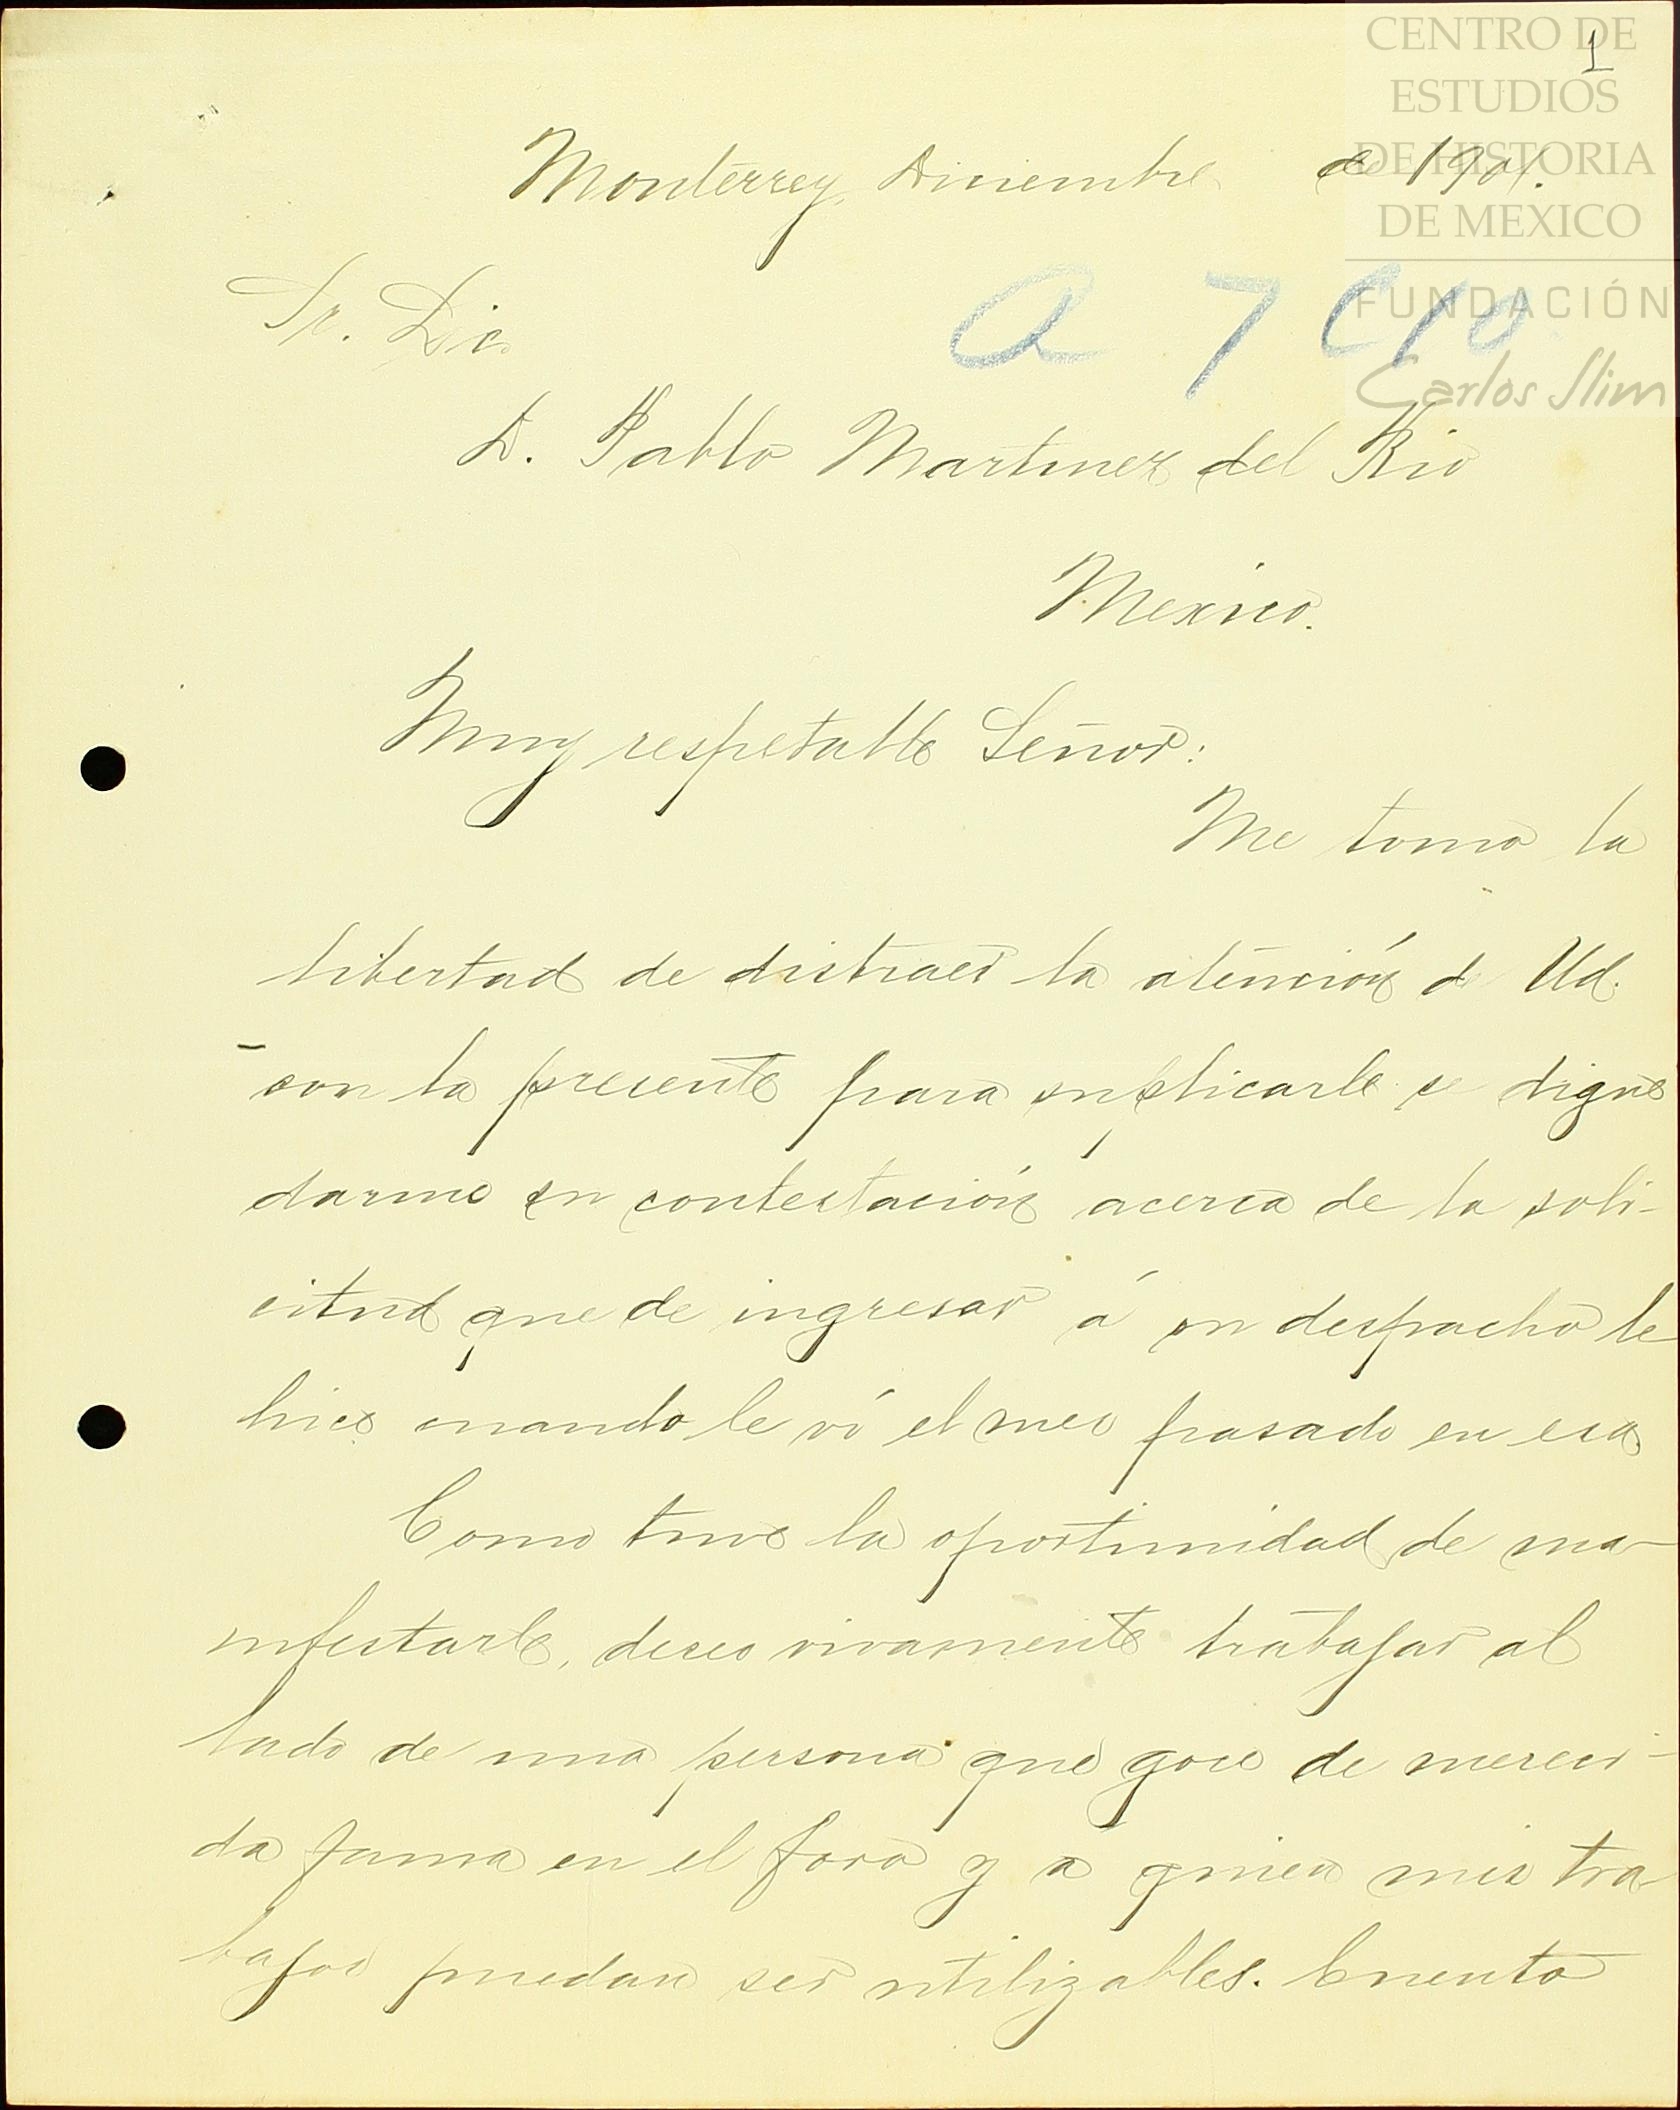 CENTRO DE
ESTUDIOS
DE HISTORIA
DE MEXICO
FUNDACIÓN
Carlos Slim
1
Monterrey, Diciembre de 1901.
Sr. Lic.
a 7 C/10.
D. Pablo Martinez del Rio
Mexico.
Muy respetable Señor:
Me tomo la
libertad de distraer la atención de Ud.
con la presente para suplicarle se digne
darme su contestación acerca de la soli-
citud que de ingresar á su despacho le
hice cuando le ví el mes pasado en esa.
Como tuve la oportunidad de ma-
nifestarle, deseo vivamente trabajar al
lado de una persona que goce de mereci-
da fama en el foro y á quien mis tra-
bajos puedan ser utilizables. Cuento